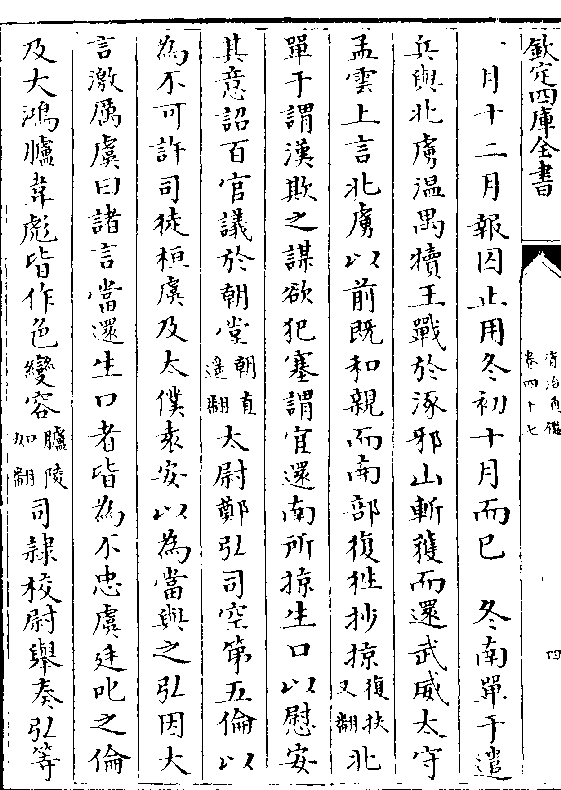 欽定四庫全書
資治通鑑
卷四十七
四
一月十二月報囚止用冬初十月而已　冬南單于遣
兵與北虜溫禺犢王戰於涿邪山斬獲而還武威太守
孟雲上言北虜以前既和親而南部復往抄掠復扶又翻北
單于謂漢欺之謀欲犯塞謂宜還南所掠生口以慰安
其意詔百官議於朝堂朝直遥翻太尉鄭弘司空第五倫以
為不可許司徒桓虞及太僕袁安以為當與之弘因大
言激厲虞曰諸言當還生口者皆為不忠虞廷叱之倫
及大鴻臚韋彪皆作色變容臚陵如翻司隸校尉舉奏弘等